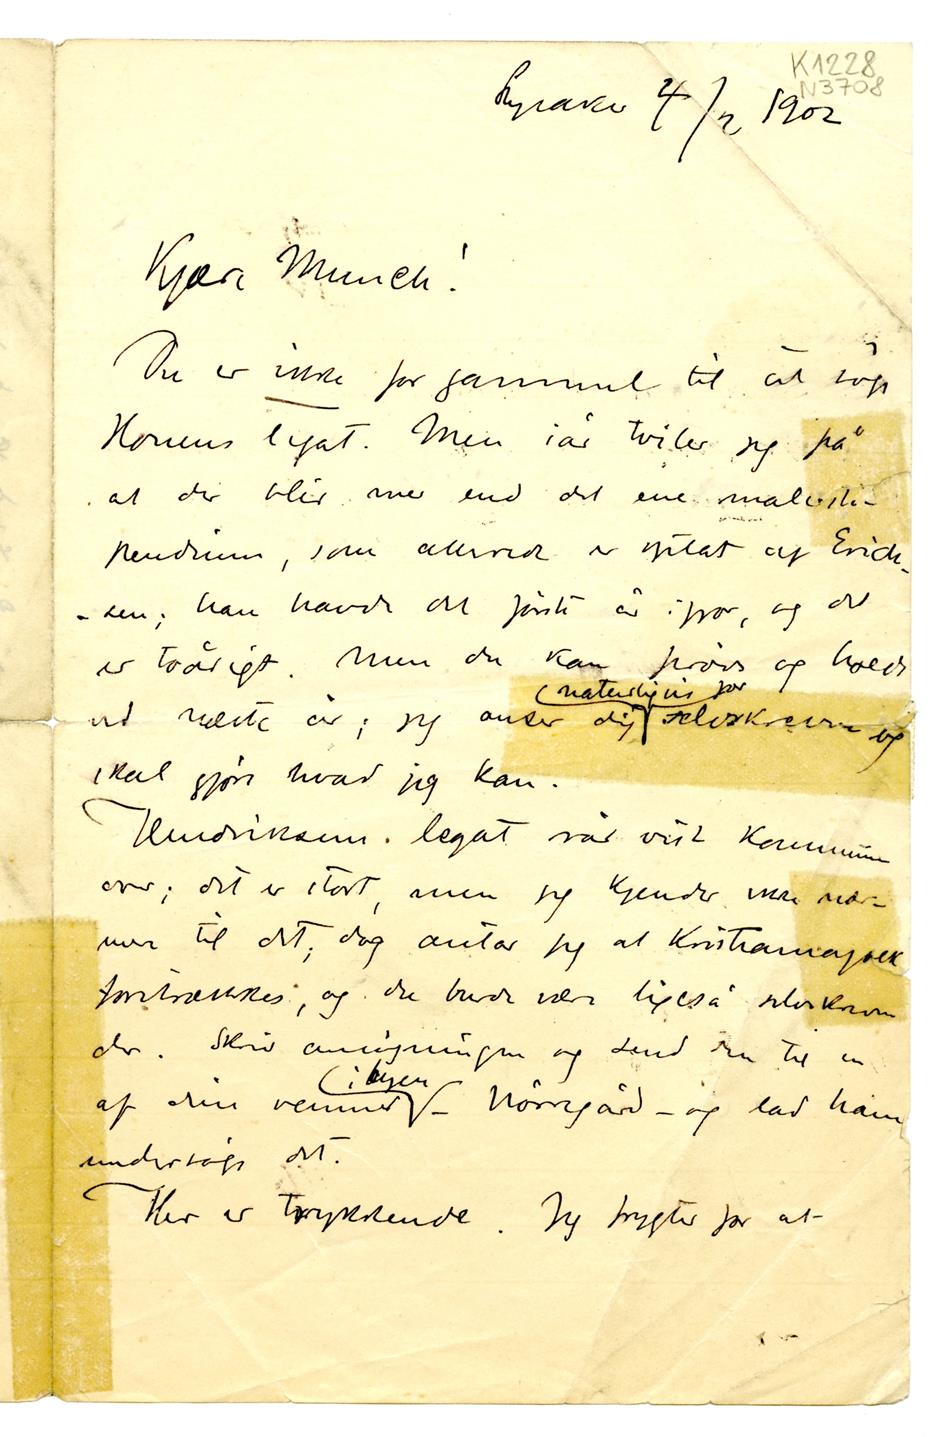 K1228
N3708
Lysaker 4/2 1902
Kjære Munch!
Du er ikke for gammel til at søge
Honens legat. Men iår tviler jeg på
at der blir mer end det ene malersti-
pendium, som allerede er optat af Erich-
-sen; han havde det første år ifjor, og det
er toårigt. Men du kan prøve og holde
ud næste år; jeg anser dig (naturligvis for) selvskreven og
skal gjøre hvad jeg kan.
Hendriksens legat rår vist Kommunen
over; det er stort, men jeg kjender ikke nær-
mere til det; dog antar jeg at Kristianiafolk
foretrækkes, og du burde være ligeså selvskreven
der. Skriv ansøgningen og send den til en
af dine venner (i byen) – Nørregård – og lad ham
undersøge det.
Her er trykkende. Jeg frygter for at